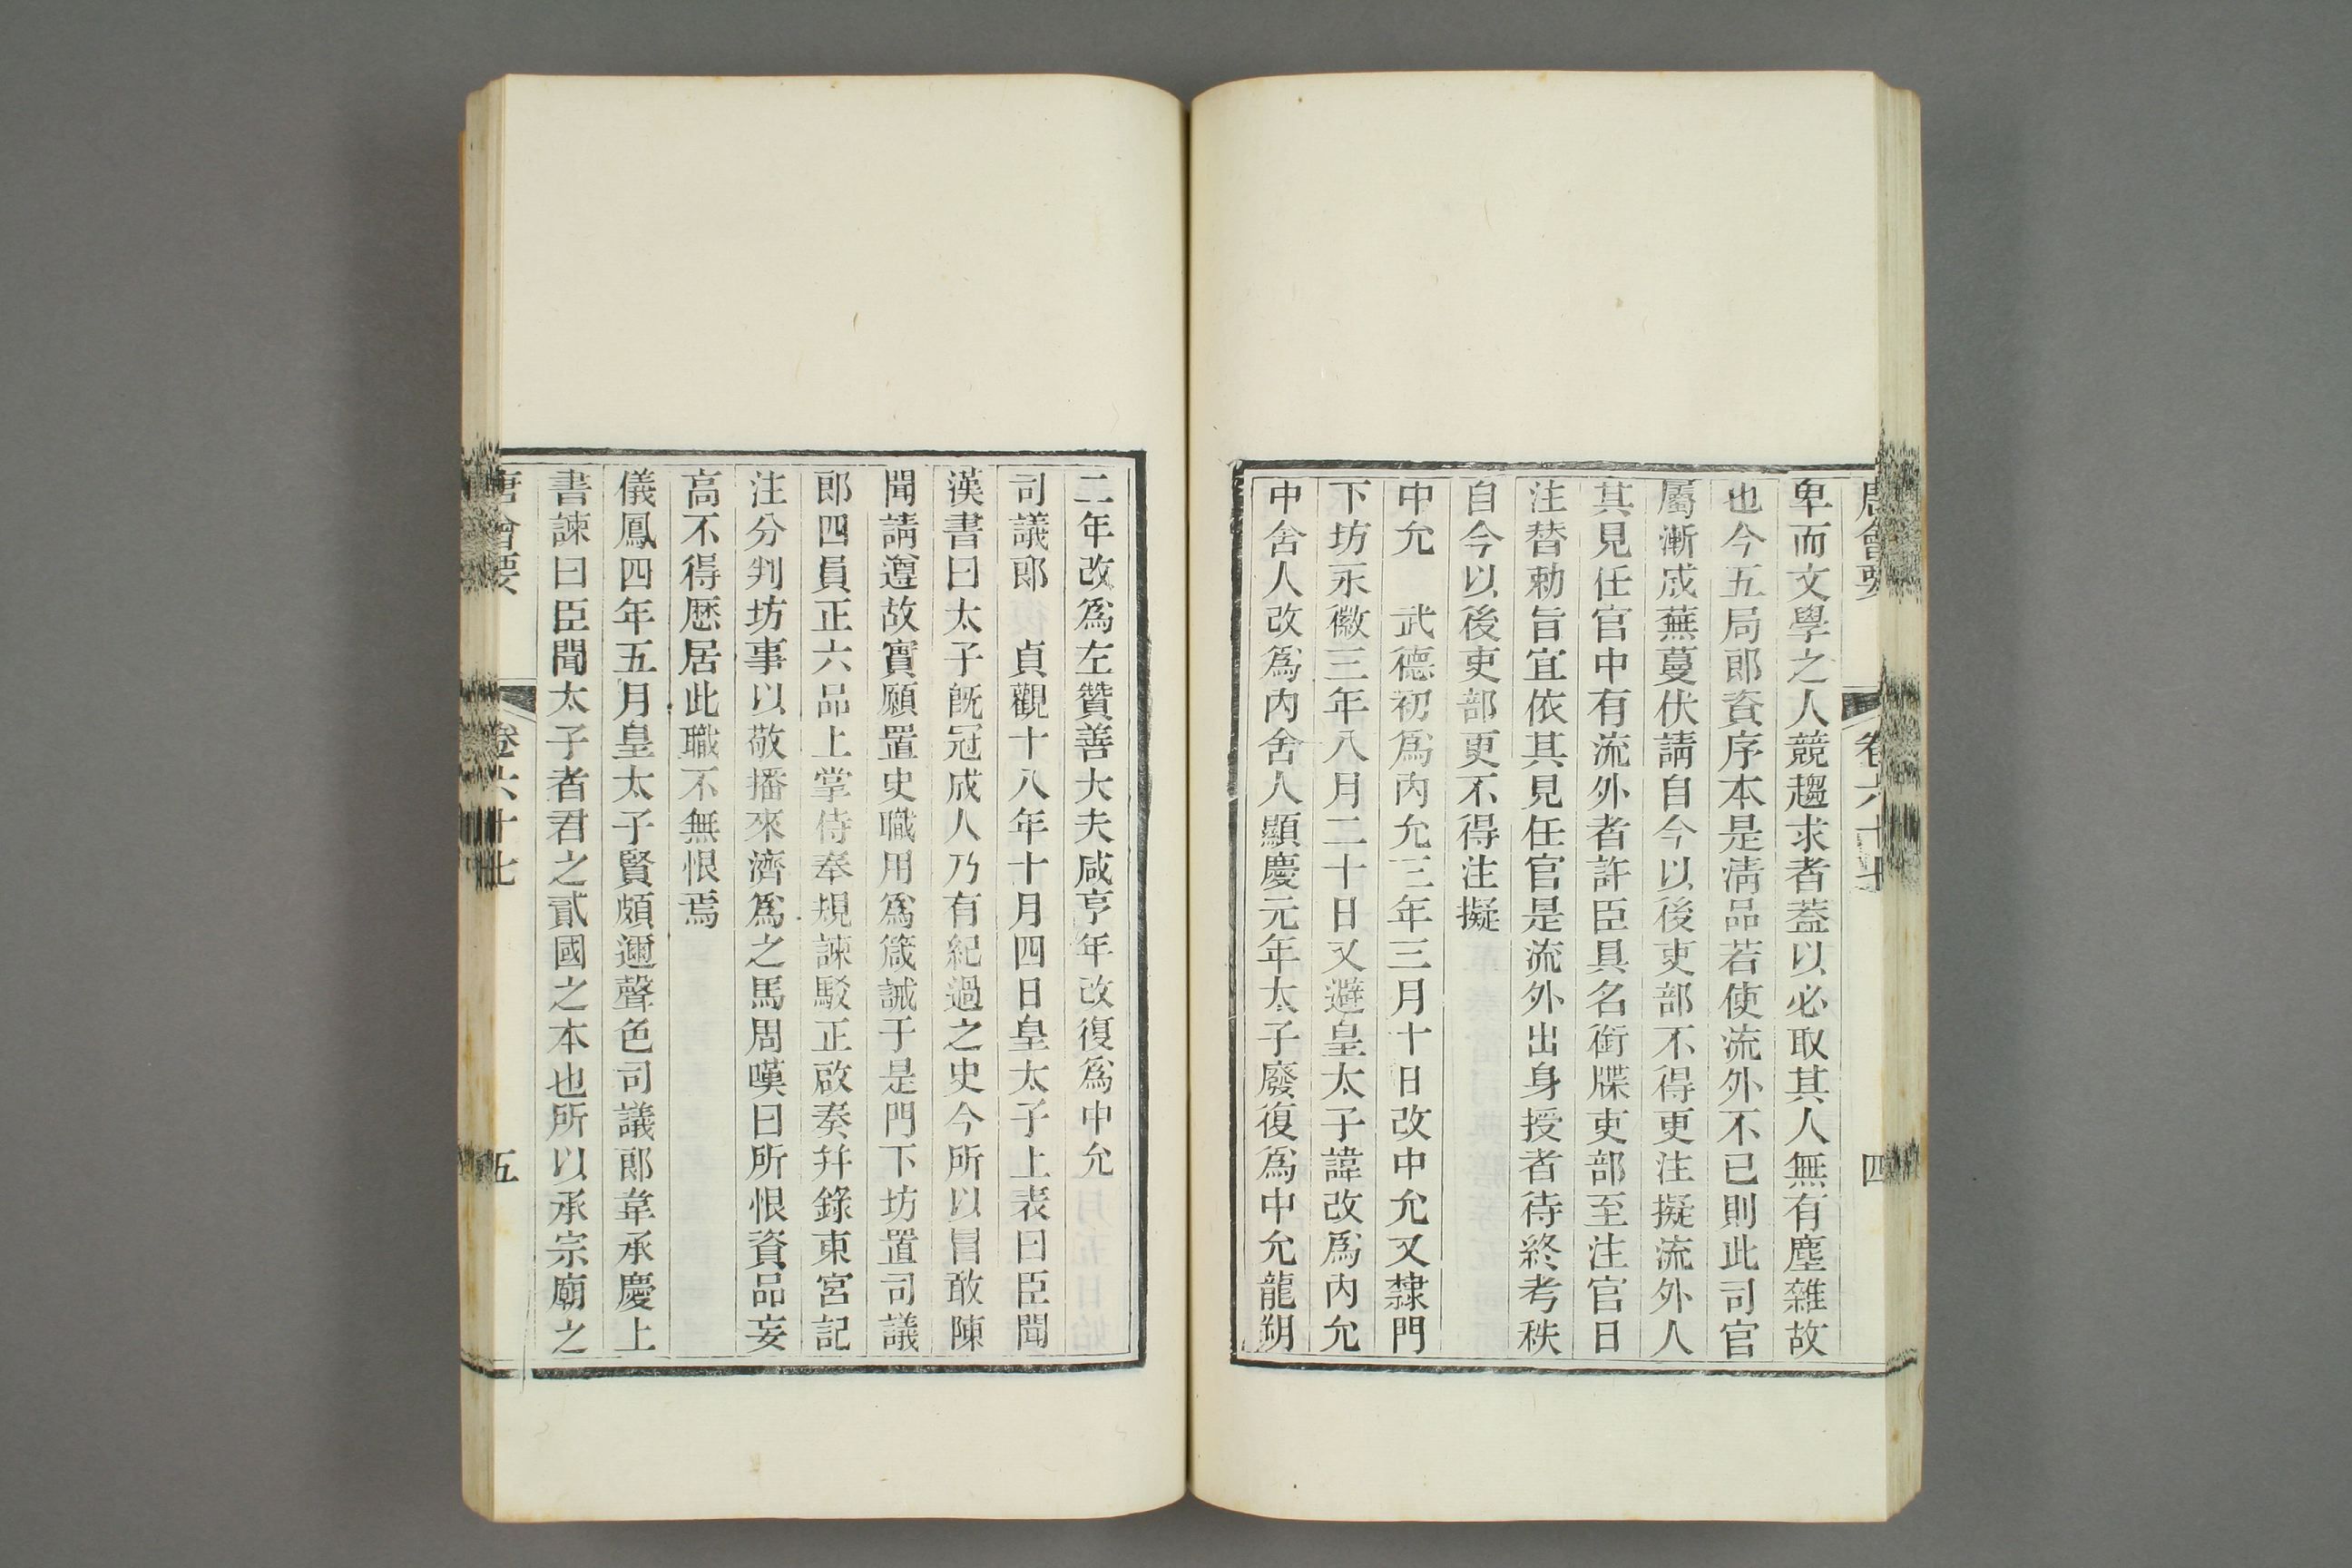 唐會要 卷六十七 四
卑而文學之人競趨求者葢以必取其人無有塵雜故
也今五局郎資序本是淸品若使流外不已則此司官
屬漸成蕪蔓伏請自今以後吏部不得更注擬流外人
其見任官中有流外者許臣具名銜牒吏部至注官日
注替勅旨宜依其見任官是流外出身授者待終考秩
自今以後吏部更不得注擬
中允 武德初爲內允三年三月十日改中允又隸門
下坊永徽三年八月二十日又避皇太子諱改爲內允
中舍人改爲內舍人顯慶元年太子廢復爲中允龍朔
二年改爲左贊善大夫咸亨年改復爲中允
司議郎 貞觀十八年十月四日皇太子上表曰臣聞
漢書曰太子旣冠成人乃有紀過之史今所以冒敢陳
聞請遵故實願置史職用爲箴誡于是門下坊置司議
郎四員正六品上掌侍奉規諫駁正啟奏幷錄東宮記
注分判坊事以敬播來濟爲之馬周嘆曰所恨資品妄
高不得歷居此職不無恨焉
儀鳳四年五月皇太子賢頗邇聲色司議郎韋承慶上
書諫曰臣聞太子者君之貳國之本也所以承宗廟之
唐會要 卷六十七 五